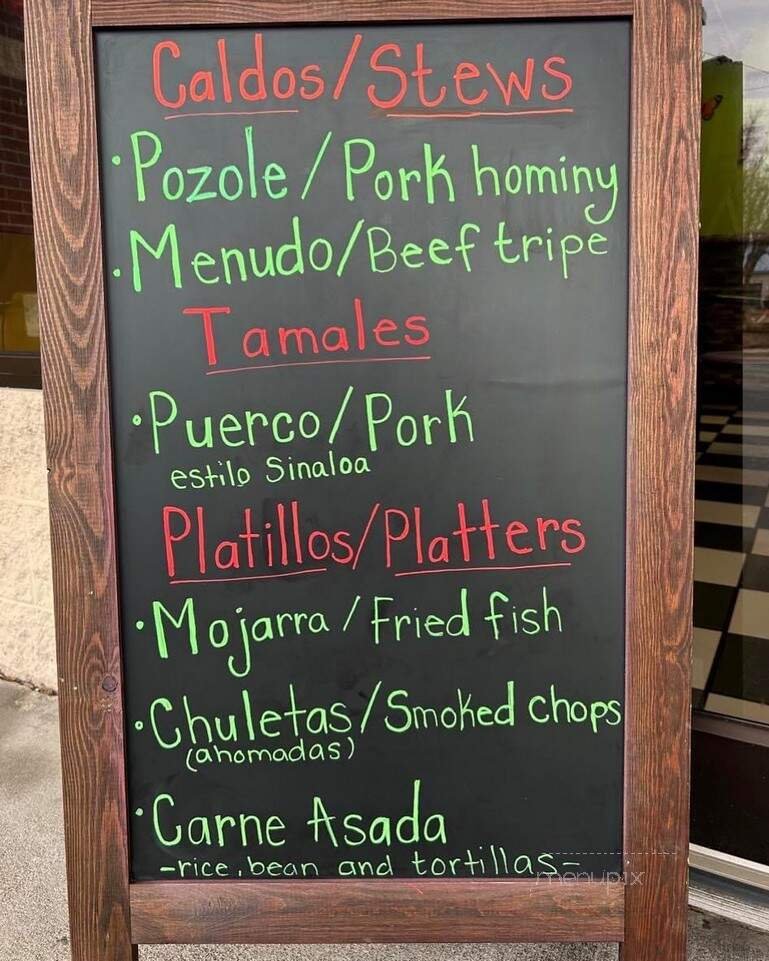 Caldos/Stews
·Pozole/Pork hominy
·Menudo/Beef tripe
Tamales
·Puerco/Pork
estilo Sinaloa
Platillos/Platters
·Mojarra/Fried fish
·Chuletas/Smoked chops
(ahomadas)
·Carne Asada
-rice, bean and tortillas-
menupix